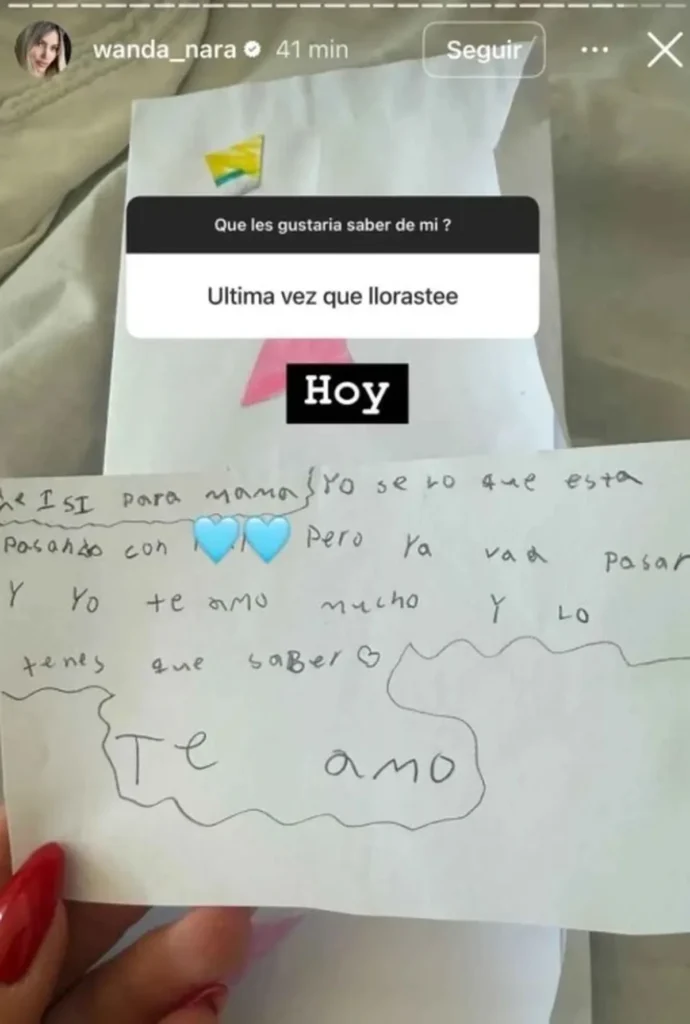 wanda_nara 41 min Seguir
Que les gustaria saber de mi ?
Ultima vez que llorastee
Hoy
ISI para mama Yo se lo que esta
Pasando con Pero Ya va a Pasar
Y Yo te amo mucho Y Lo
tenes que saber
Te amo